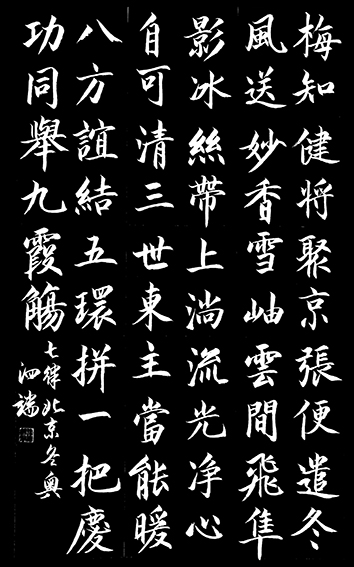 梅知健將聚京張便遣冬
風送妙香雪岫雲間飛隼
影冰絲帶上淌流光净心
自可清三世東主當能暖
八方誼結五環拼一把慶
功同舉九霞觴
七律北京冬奧
泗端